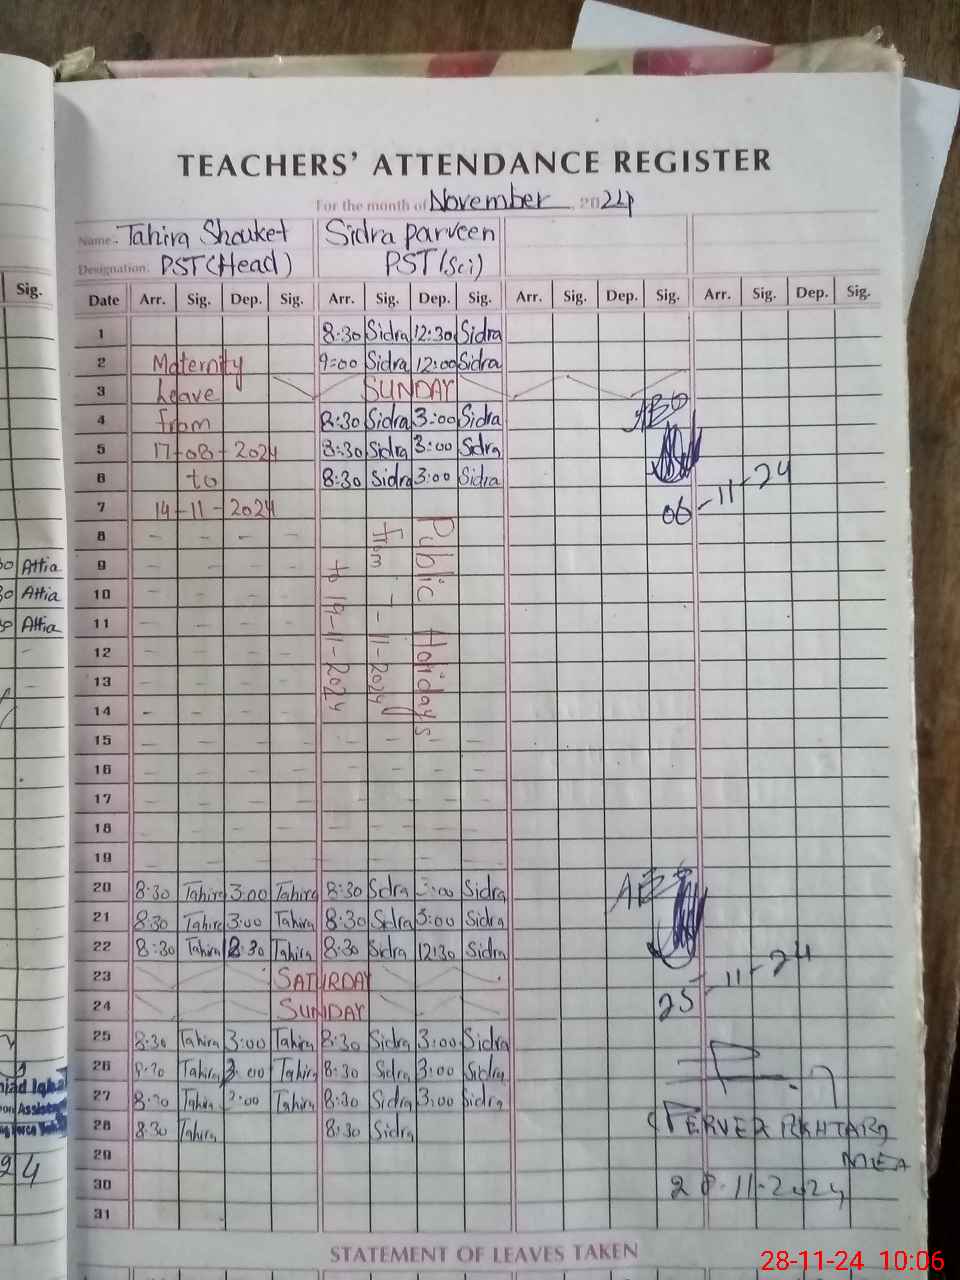 TEACHERS' ATTENDANCE REGISTER
For the month of November 2024
Name:- Tahira Shouket Sidra parveen
Designation: PST (Head) PST (Sci)
Sig. Date Arr. Sig. Dep. Sig. Arr. Sig. Dep. Sig. Arr. Sig. Dep. Sig. Arr. Sig. Dep. Sig.
1 8:30 Sidra 12:30 Sidra
2 Maternity 9:00 Sidra 12:00 Sidra
3 Leave SUNDAY
4 from 8:30 Sidra 3:00 Sidra AEO
5 17-08-2024 8:30 Sidra 3:00 Sidra
6 to 8:30 Sidra 3:00 Sidra
7 14-11-2024 06-11-24
8
Attia 9
Attia 10
Attia 11
12
13
14
15
16
17
18
19
Public Holidays
from 7-11-2024
to 19-11-2024
20 8:30 Tahira 3:00 Tahira 8:30 Sidra 3:00 Sidra
21 8:30 Tahira 3:00 Tahira 8:30 Sidra 3:00 Sidra
22 8:30 Tahira Tahira 8:30 Sidra 12:30 Sidra
23 SATURDAY
24 SUNDAY 25-11-24
25 8:30 Tahira 3:00 Tahira 8:30 Sidra 3:00 Sidra
26 8:30 Tahira 3:00 Tahira 8:30 Sidra 3:00 Sidra
27 8:30 Tahira 3:00 Tahira 8:30 Sidra 3:00 Sidra
28 8:30 Tahira 8:30 Sidra
29 MEA
30 28-11-2024
31
STATEMENT OF LEAVES TAKEN
28-11-24 10:06